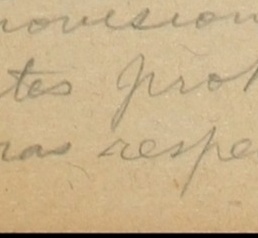 rovision
tes prot
ras respe